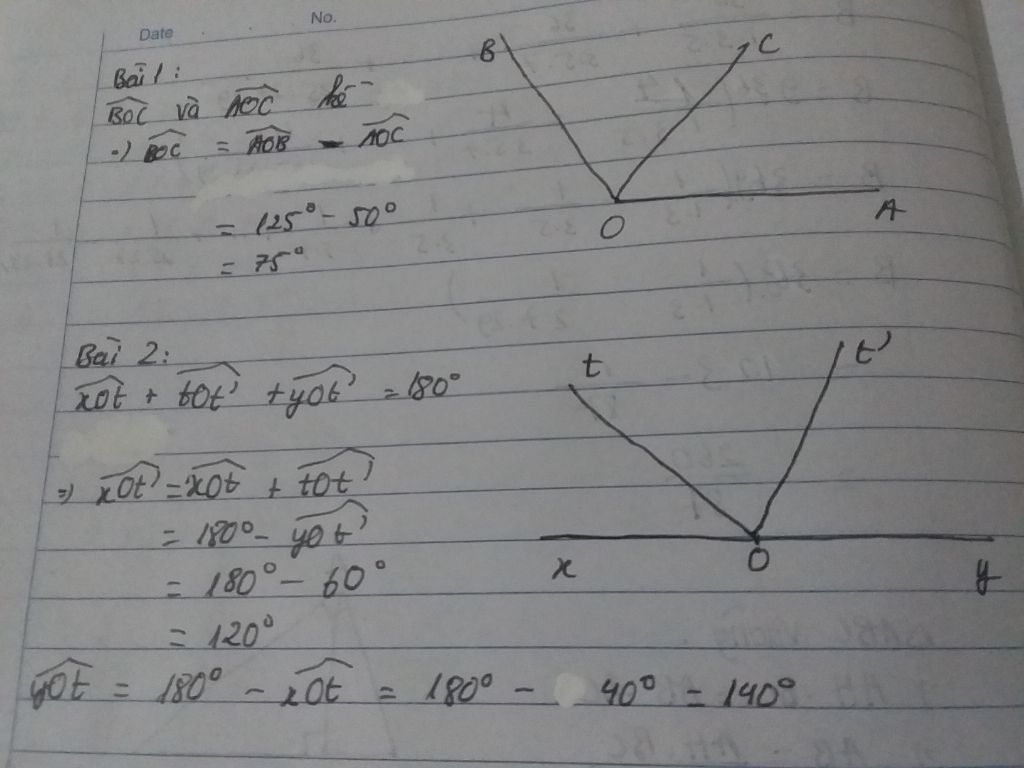 Date No.
Bài 1:
BOC và AOC kề
=) BOC = AOB - AOC
= 125° - 50°
= 75°
B C
O A
Bài 2:
xOt + tOt' + yOt' = 180°
=) xOt' = xOt + tOt'
= 180° - yOt'
= 180° - 60°
= 120°
yOt = 180° - xOt = 180° - 40° = 140°
t t'
x O y